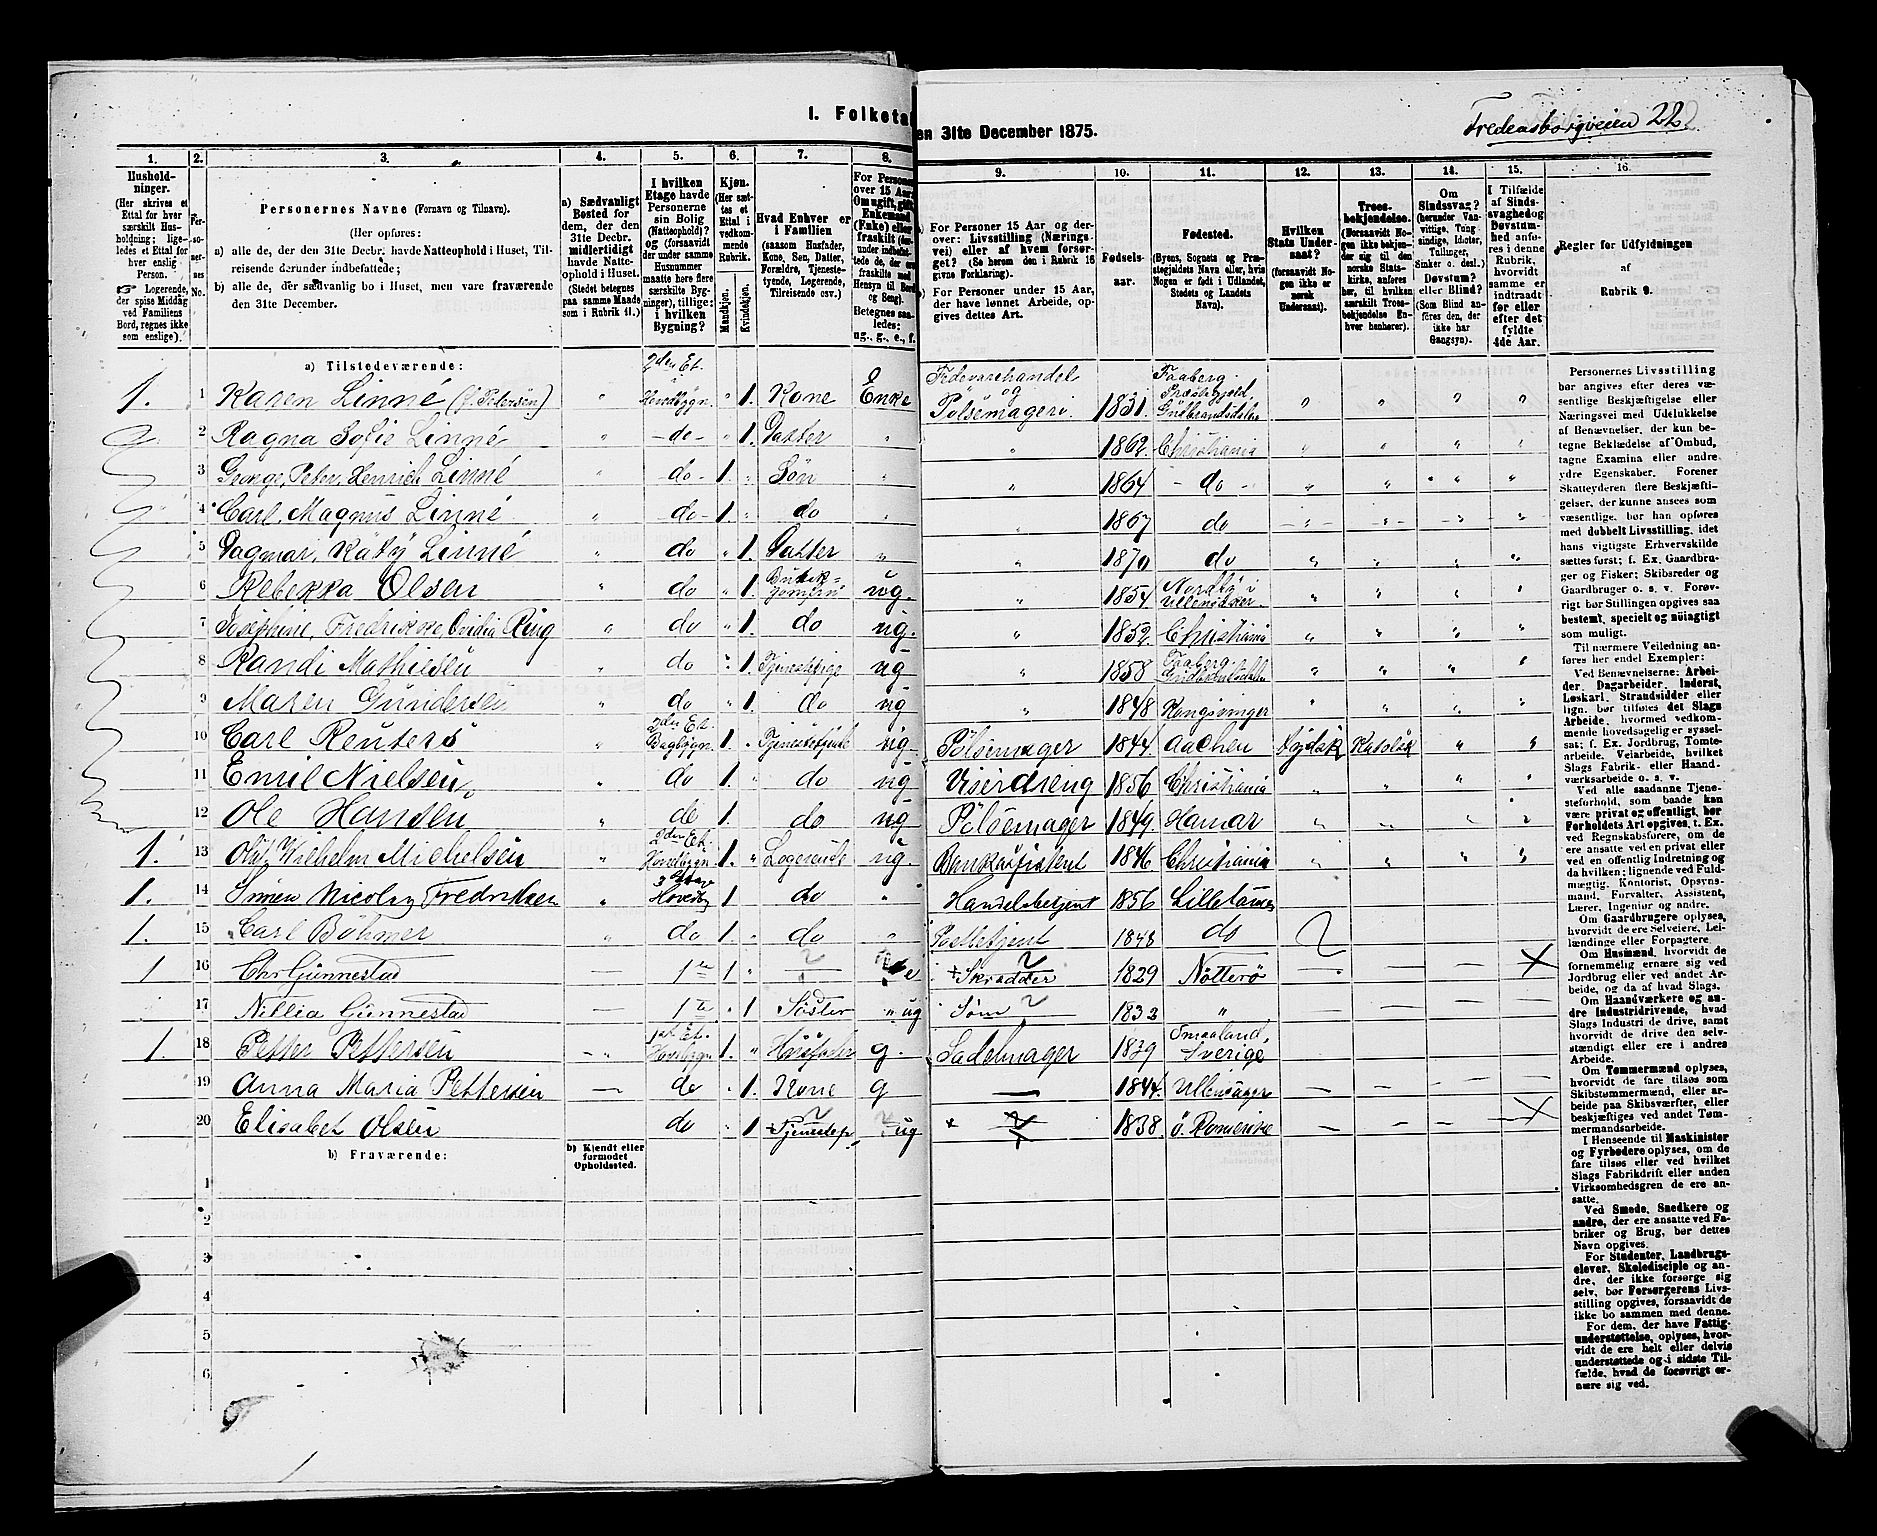 I. Folketal
en 31te December 1875.
Fredensborgveien 22
1. 2. 3. 4. 5. 6. 7. 8. 9. 10. 11. 12. 13. 14. 15. 16.
Hushold-
ninger.
(Her skrives et
Ettal for hver
særskilt Hus-
holdning; lige-
ledes et Ettal for
hver enslig
Person.
☞ Logerende,
der spise Middag
ved Familiens
Bord, regnes ikke
som enslige).
Per-
so-
ner-
nes
No.
Personernes Navne (Fornavn og Tilnavn).
(Her opføres:
a) alle de, der den 31te Decbr. havde Natteophold i Huset, Til-
reisende derunder indbefattede;
b) alle de, der sædvanlig bo i Huset, men vare fraværende
den 31te December.
a) Sædvanligt
Bosted for
dem, der den
31te Decbr.
midlertidigt
havde Natte-
ophold i Huset.
(Stedet betegnes
paa samme Maade
som i Rubrik 11.)
I hvilken
Etage havde
Personerne
sin Bolig
(Natteophold)?
og (forsaavidt
der under samme
Husnummer
maatte høre flere
særskilte Byg-
ninger), tillige:
i hvilken
Bygning?
Kjøn.
(Her sæt-
tes et
Ettal i
vedkom-
mende
Rubrik.
Mandkjøn.
Kvindekjøn.
Hvad Enhver er
i Familien
(saasom Husfader,
Kone, Søn, Datter,
Forældre, Tjeneste-
tyende, Logerende,
Tilreisende osv.)
For Personer
over 15 Aar:
Om ugift, gift,
Enkemand
(Enke) eller
fraskilt (der-
under indbefat-
tede de, der ere
fraskilte med
Hensyn til Bord
og Seng).
Betegnes saa-
ledes:
ug., g., e., f.
a) For Personer 15 Aar og der-
over: Livsstilling (Nærings-
vei) eller af hvem forsør-
get? (Se herom den i Rubrik 16
givne Forklaring).
b) For Personer under 15 Aar,
der have lønnet Arbeide, op-
gives dettes Art.
Fødsels-
aar.
Fødested.
(Byens, Sognets og Præ-
stegjeldets Navn eller, hvis
Nogen er født i Udlandet,
Stedets og Landets
Navn).
Hvilken
Stats Under-
saat?
(forsaavidt No-
gen ikke er
norsk
Undersaat).
Troes-
bekjendelse.
(Forsaavidt No-
gen ikke bekjen-
der sig til den
norske Stats-
kirke, anføres
her, til hvilken
særskilt Troes-
bekjendelse En-
hver henhører).
Om
Sindssvag?
(herunder Van-
vittige, Tung-
sindige, Idioter,
Tullinger,
Sinker o. desl.)
Døvstum?
eller Blind?
(Som Blind an-
føres den, der
ikke har
Gangsyn).
I Tilfælde
af Sinds-
svaghed og
Døvstum-
hed anfø-
res i denne
Rubrik,
hvorvidt
samme er
indtraadt
før eller
efter det
fyldte
4de Aar.
Regler for Udfyldningen
af
Rubrik 9.
a) Tilstedeværende:
1. 1 Karen Linné (f. Pedersen) " 2den Et. Hovedbygn. " 1. Kone E Enke Fedevarehandel og Pölsemageri. 1831. Faaberg Præstegjeld. Gudbrandsdalen " " " "
2 Ragna Sofie Linné " -do- " 1. Datter " " 1862. Christiania " " " "
3 George, Peter, Henrich Linné " -do- 1. " Søn " 1864 -do- " " " "
4 Carl, Magnus Linné " -do- 1. " do " " 1867 do " " " "
5 Dagmar, Katy Linné " do " 1. Datter " " 1870 do " " " "
6 Rebekka Olsen " do " 1. ug. " 1854 Nordby i Ullensaker. " " " "
7 Josephine, Fredrikke, Ovidia Ring " do " 1. do ug. " 1852 Christiania " " " "
8 Randi Mathiesen " do " 1. Tjenestepige ug " 1858 Faaberg Gudbrandsdalen " " " "
9 Maren Gundersen " do " 1. do ug " 1848 Kongsvinger " " " "
10 Carl Reuters " 2den Et. Bagbygn. 1. " Tjenestetjente ug Pölsemager 1844 Aachen Tydsk Katolsk " "
11 Emil Nielsen " do 1. " do ug Viserdreng 1856 Christiania " " " "
12 Ole Hansen " do 1. do ug Pölsemager 1849. Hamar " " " "
1. 13 Olaf, Wilhelm Michelsen " 2den Et. Hovedbygn 1. " Logerende ug. Bankassistent 1846 Christiania " " " "
1. 14 Simen Nicolay Fredriksen " 3 Etage Hovedb 1 do " Handelsbetjent 1856 Lillehammer
1. 15 Carl Böhmer " do 1. do " Postbetjent 1848 do
1 16 Chr Gunnestad — 1ste 1 " e Skrædder 1829 Nötterö — — —
17 Nillia Gunnestad — 1ste " 1 Söster " ug Söm 1832 " — — —
1. 18 Petter Pettersen -" 1st Et. Hovedbygn 1. " Husfader g. Sadelmager 1839 Smaaland, Sverige — — —
19 Anna Maria Pettersen — do " 1. Kone g — 1844. Ullensager — — — —
20 Elisabet Olsen do " 1 Tjenestep. ug 1838. ö. Romerike — — —
b) Fraværende:
b) Kjendt eller
formodet
Opholdssted.
1
2
3
4
5
6
Personernes Livsstilling
bør angives efter deres væ-
sentlige Beskjæftigelse eller
Næringsvei med Udelukkelse
af Benævnelser, der kun be-
tegne Beklædelse af Ombud,
tagne Examina eller andre
ydre Egenskaber. Forener
Skatteyderen flere Beskjæfti-
gelser, der kunne ansees som
væsentlige, bør han opføres
med dobbelt Livsstilling, idet
hans vigtigste Erhvervskilde
sættes først; f. Ex. Gaardbru-
ger og Fisker; Skibsreder og
Gaardbruger o. s. v. Forøv-
rigt bør Stillingen opgives saa
bestemt, specielt og nøiagtigt
som muligt.
Til nærmere Veiledning an-
føres her endel Exempler:
Ved Benævnelserne: Arbei-
der, Dagarbeider, Inderst,
Løskarl, Strandsidder eller
lign. bør tilføres det Slags
Arbeide, hvormed vedkom-
mende hovedsagelig er syssel-
sat; f. Ex. Jordbrug, Tomte-
arbeide, Veiarbeide, hvilket
Slags Fabrik- eller Haand-
værksarbeide o. s. v.
Ved alle saadanne Tjene-
steforhold, som baade kan
være privat og offentligt, bør
Forholdets Art opgives, t. Ex.
ved Regnskabsførere, om de
ere ansatte ved en privat eller
ved en offentlig Indretning og
da hvilken; lignende ved Fuld-
mægtig, Kontorist, Opsyns-
mand, Forvalter, Assistent,
Lærer, Ingeniør og andre.
Om Gaardbrugere oplyses,
hvorvidt de ere Selveiere, Lei-
lændinge eller Forpagtere.
Om Husmænd, hvorvidt de
fornemmelig ernære sig ved
Jordbrug eller ved andet Ar-
beide, og da af hvad Slags.
Om Haandværkere og an-
dre Industridrivende, hvad
Slags Industri de drive, samt
hvorvidt de drive den selv-
stændigt eller ere i andres
Arbeide.
Om Tømmermænd oplyses,
hvorvidt de fare tilsøs som
Skibstømmermænd, eller ar-
beide paa Skibsværfter, eller
beskjæftiges ved andet Tøm-
mermandsarbeide.
I Henseende til Maskinister
og Fyrbødere oplyses, om de
fare tilsøs eller ved hvilket
Slags Fabrikdrift eller anden
Virksomhedsgren de ere an-
satte.
Ved Smede, Snedkere og
andre, der ere ansatte ved Fa-
briker og Brug, bør dettes
Navn opgives.
For Studenter, Landbrugs-
elever, Skoledisciple og an-
dre, der ikke forsørge sig
selv, bør Forsørgerens Livs-
stilling opgives, forsaavidt de
ikke bo sammen med denne.
For dem, der have Fattig-
understøttelse, oplyses, hvor-
vidt de ere helt eller delvis
understøttede og i sidste Til-
fælde, hvad de forøvrigt er-
nære sig ved.